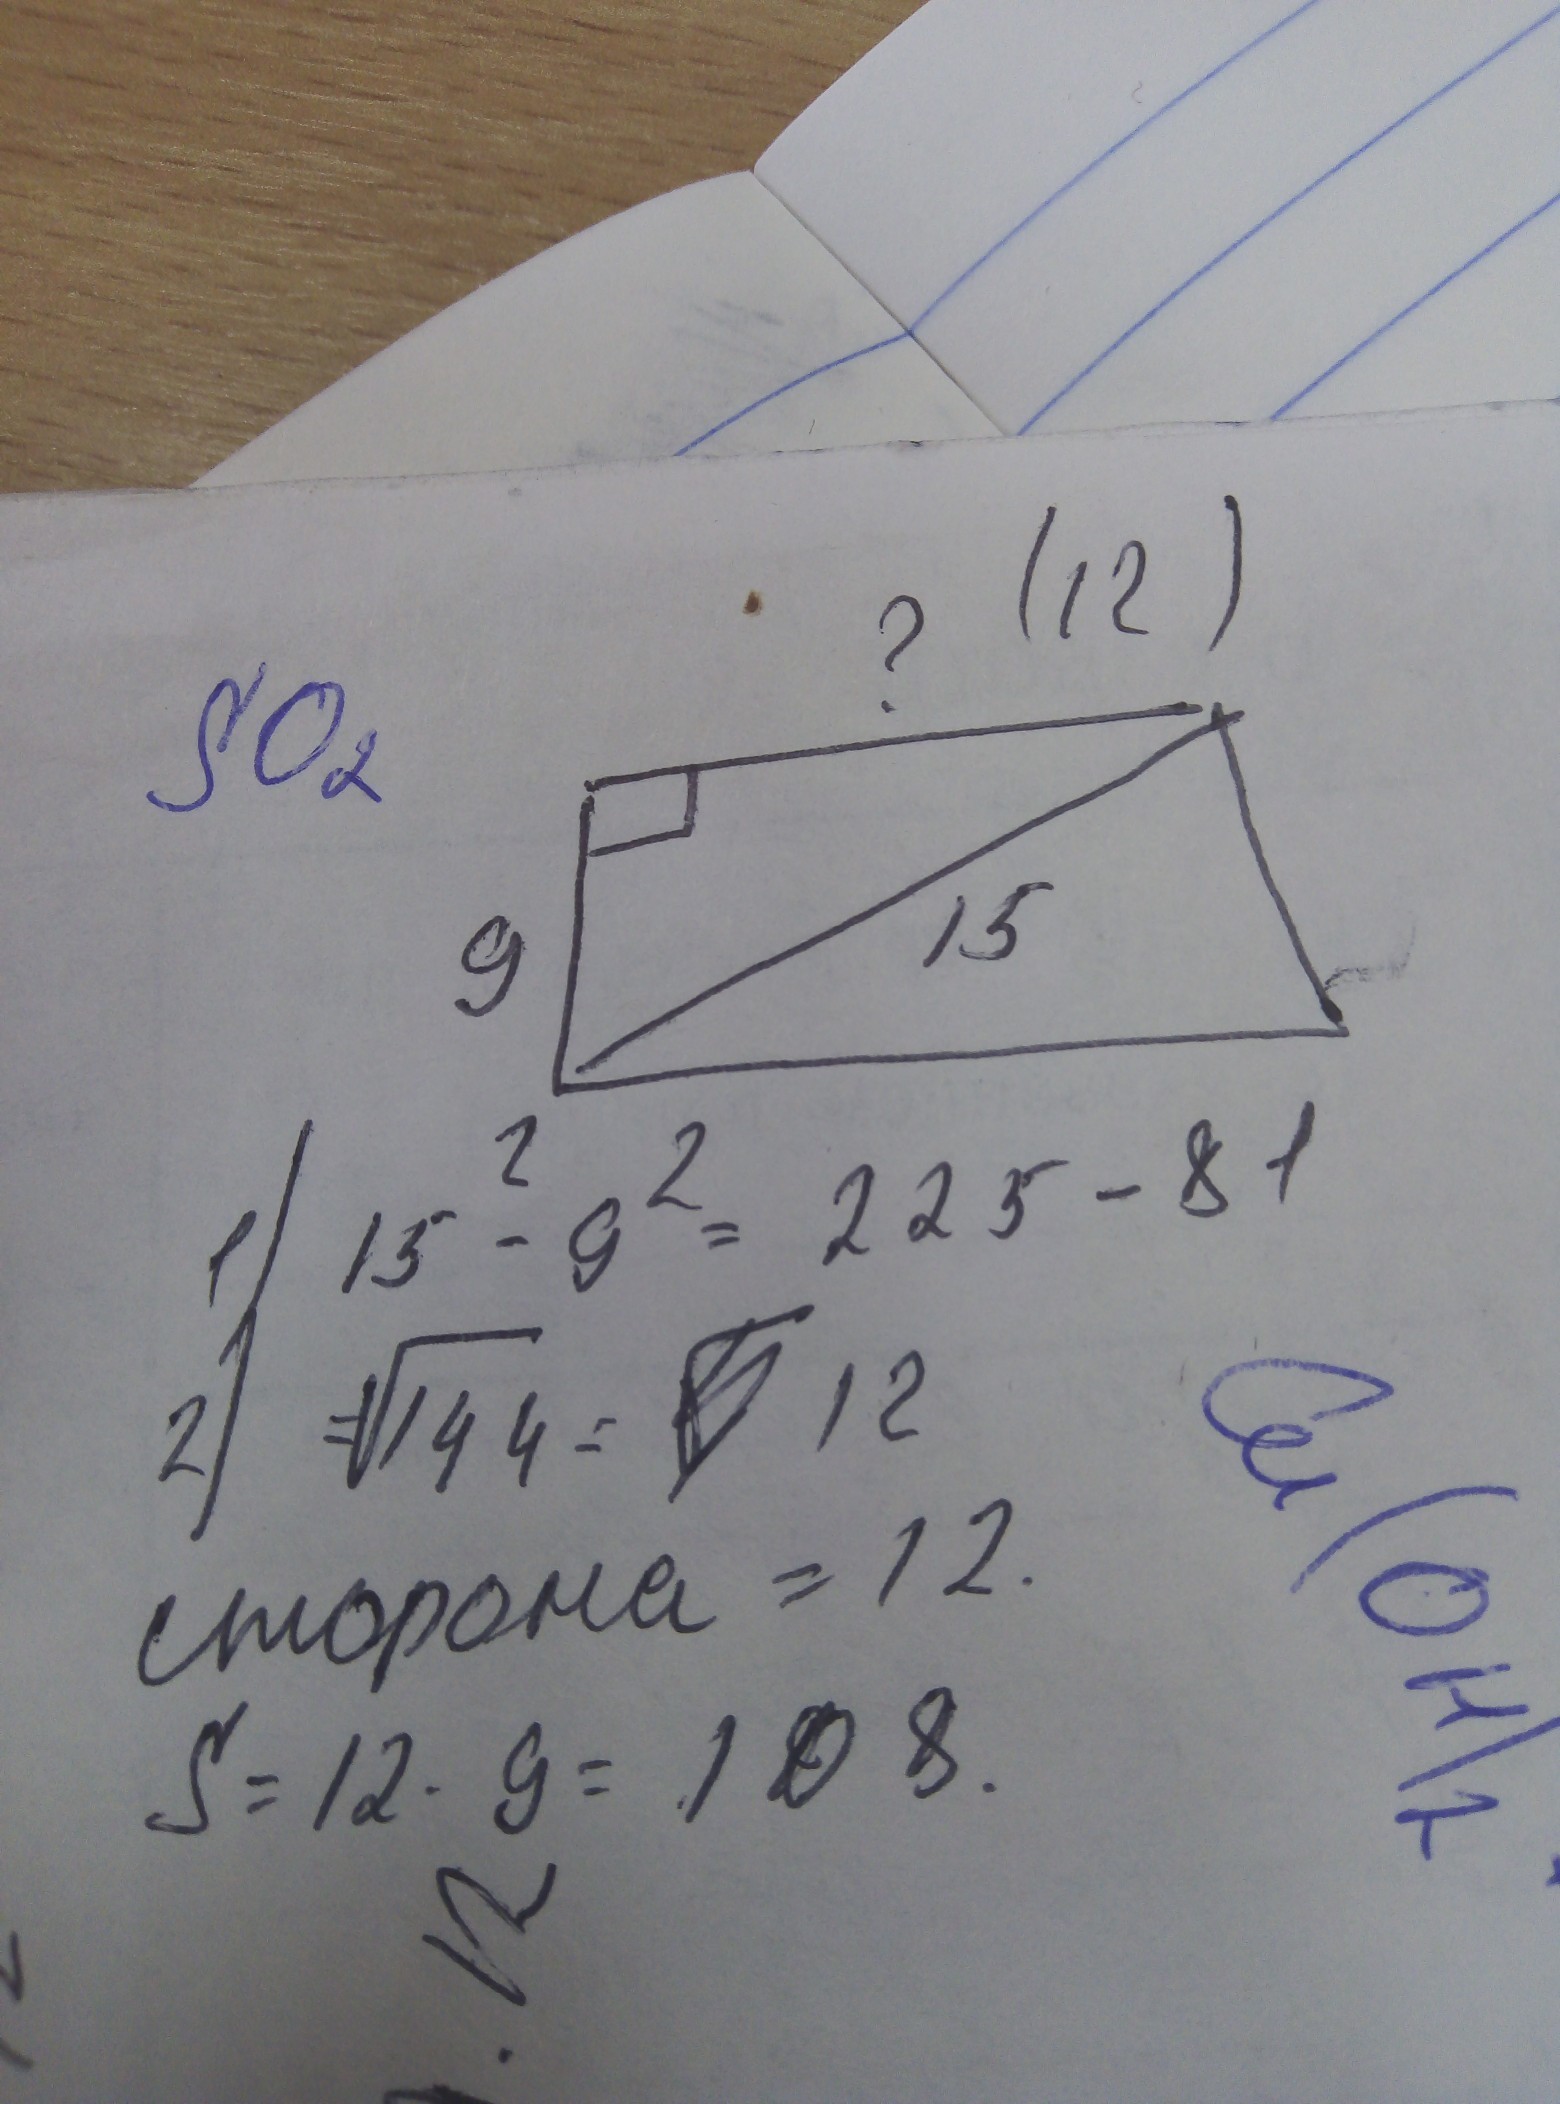 ? (12)
SO₂
9
15
1) 15² - 9² = 225 - 81
2) = √144 = 12
сторона = 12.
S = 12 · 9 = 108.
Cu(OH)₂